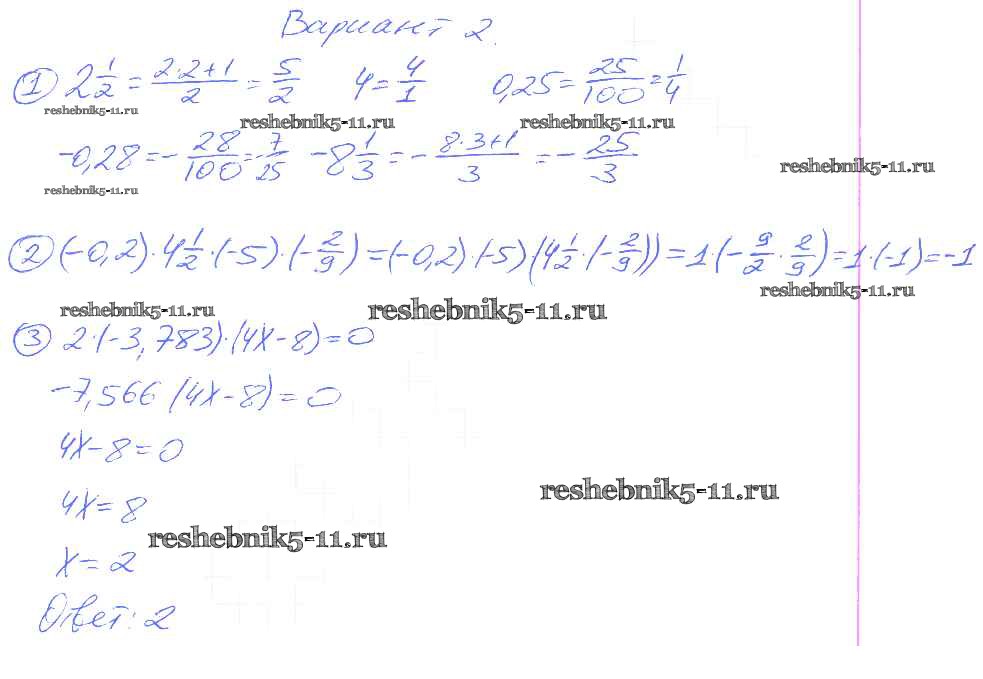 Вариант 2.
① 2 1/2 = (2·2+1)/2 = 5/2 4 = 4/1 0,25 = 25/100 = 1/4
reshebnik5-11.ru reshebnik5-11.ru reshebnik5-11.ru
-0,28 = -28/100 = -7/25 -8 1/3 = -(8·3+1)/3 = -25/3
reshebnik5-11.ru
reshebnik5-11.ru
② (-0,2)·4 1/2·(-5)·(-2/9) = (-0,2)·(-5)·(4 1/2·(-2/9)) = 1·(-9/2·2/9) = 1·(-1) = -1
reshebnik5-11.ru reshebnik5-11.ru reshebnik5-11.ru
③ 2·(-3,783)·(4x-8)=0
-7,566 (4x-8)=0
4x-8=0
4x=8
reshebnik5-11.ru
reshebnik5-11.ru
x=2
Ответ: 2